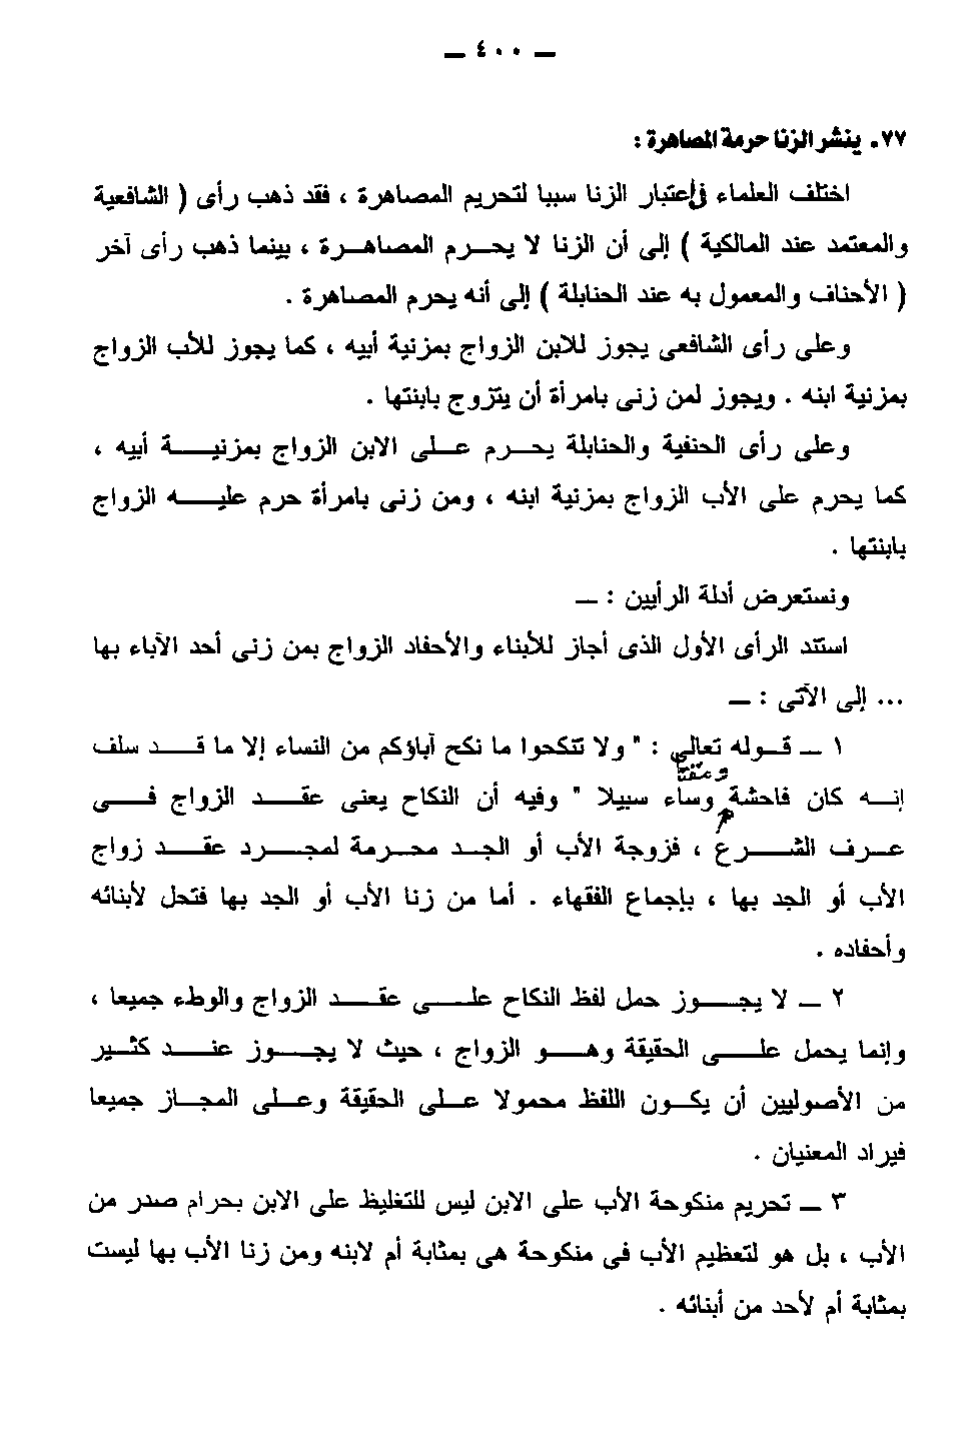 — ٤٠٠ —
٧٧. ينشر الزنا حرمة المصاهرة :
اختلف العلماء في إعتبار الزنا سببا لتحريم المصاهرة ، فقد ذهب رأى ( الشافعية
والمعتمد عند المالكية ) إلى أن الزنا لا يحرم المصاهرة ، بينما ذهب رأى آخر
( الأحناف والمعمول به عند الحنابلة ) إلى أنه يحرم المصاهرة .
وعلى رأى الشافعى يجوز للابن الزواج بمزنية أبيه ، كما يجوز للأب الزواج
بمزنية ابنه . ويجوز لمن زنى بامرأة أن يتزوج بابنتها .
وعلى رأى الحنفية والحنابلة يحرم على الابن الزواج بمزنية أبيه ،
كما يحرم على الأب الزواج بمزنية ابنه ، ومن زنى بامرأة حرم عليه الزواج
بابنتها .
ونستعرض أدلة الرأيين : —
استند الرأى الأول الذى أجاز للأبناء والأحفاد الزواج بمن زنى أحد الآباء بها
... إلى الآتى : —
١ — قوله تعالى : " ولا تنكحوا ما نكح آباؤكم من النساء إلا ما قد سلف
ومقتا
إنه كان فاحشة وساء سبيلا " وفيه أن النكاح يعنى عقد الزواج فى
عرف الشرع ، فزوجة الأب أو الجد محرمة لمجرد عقد زواج
الأب أو الجد بها ، بإجماع الفقهاء . أما من زنا الأب أو الجد بها فتحل لأبنائه
وأحفاده .
٢ — لا يجوز حمل لفظ النكاح على عقد الزواج والوطء جميعا ،
وإنما يحمل على الحقيقة وهو الزواج ، حيث لا يجوز عند كثير
من الأصوليين أن يكون اللفظ محمولا على الحقيقة وعلى المجاز جميعا
فيراد المعنيان .
٣ — تحريم منكوحة الأب على الابن ليس للتغليظ على الابن بحرام صدر من
الأب ، بل هو لتعظيم الأب فى منكوحة هى بمثابة أم لابنه ومن زنا الأب بها ليست
بمثابة أم لأحد من أبنائه .